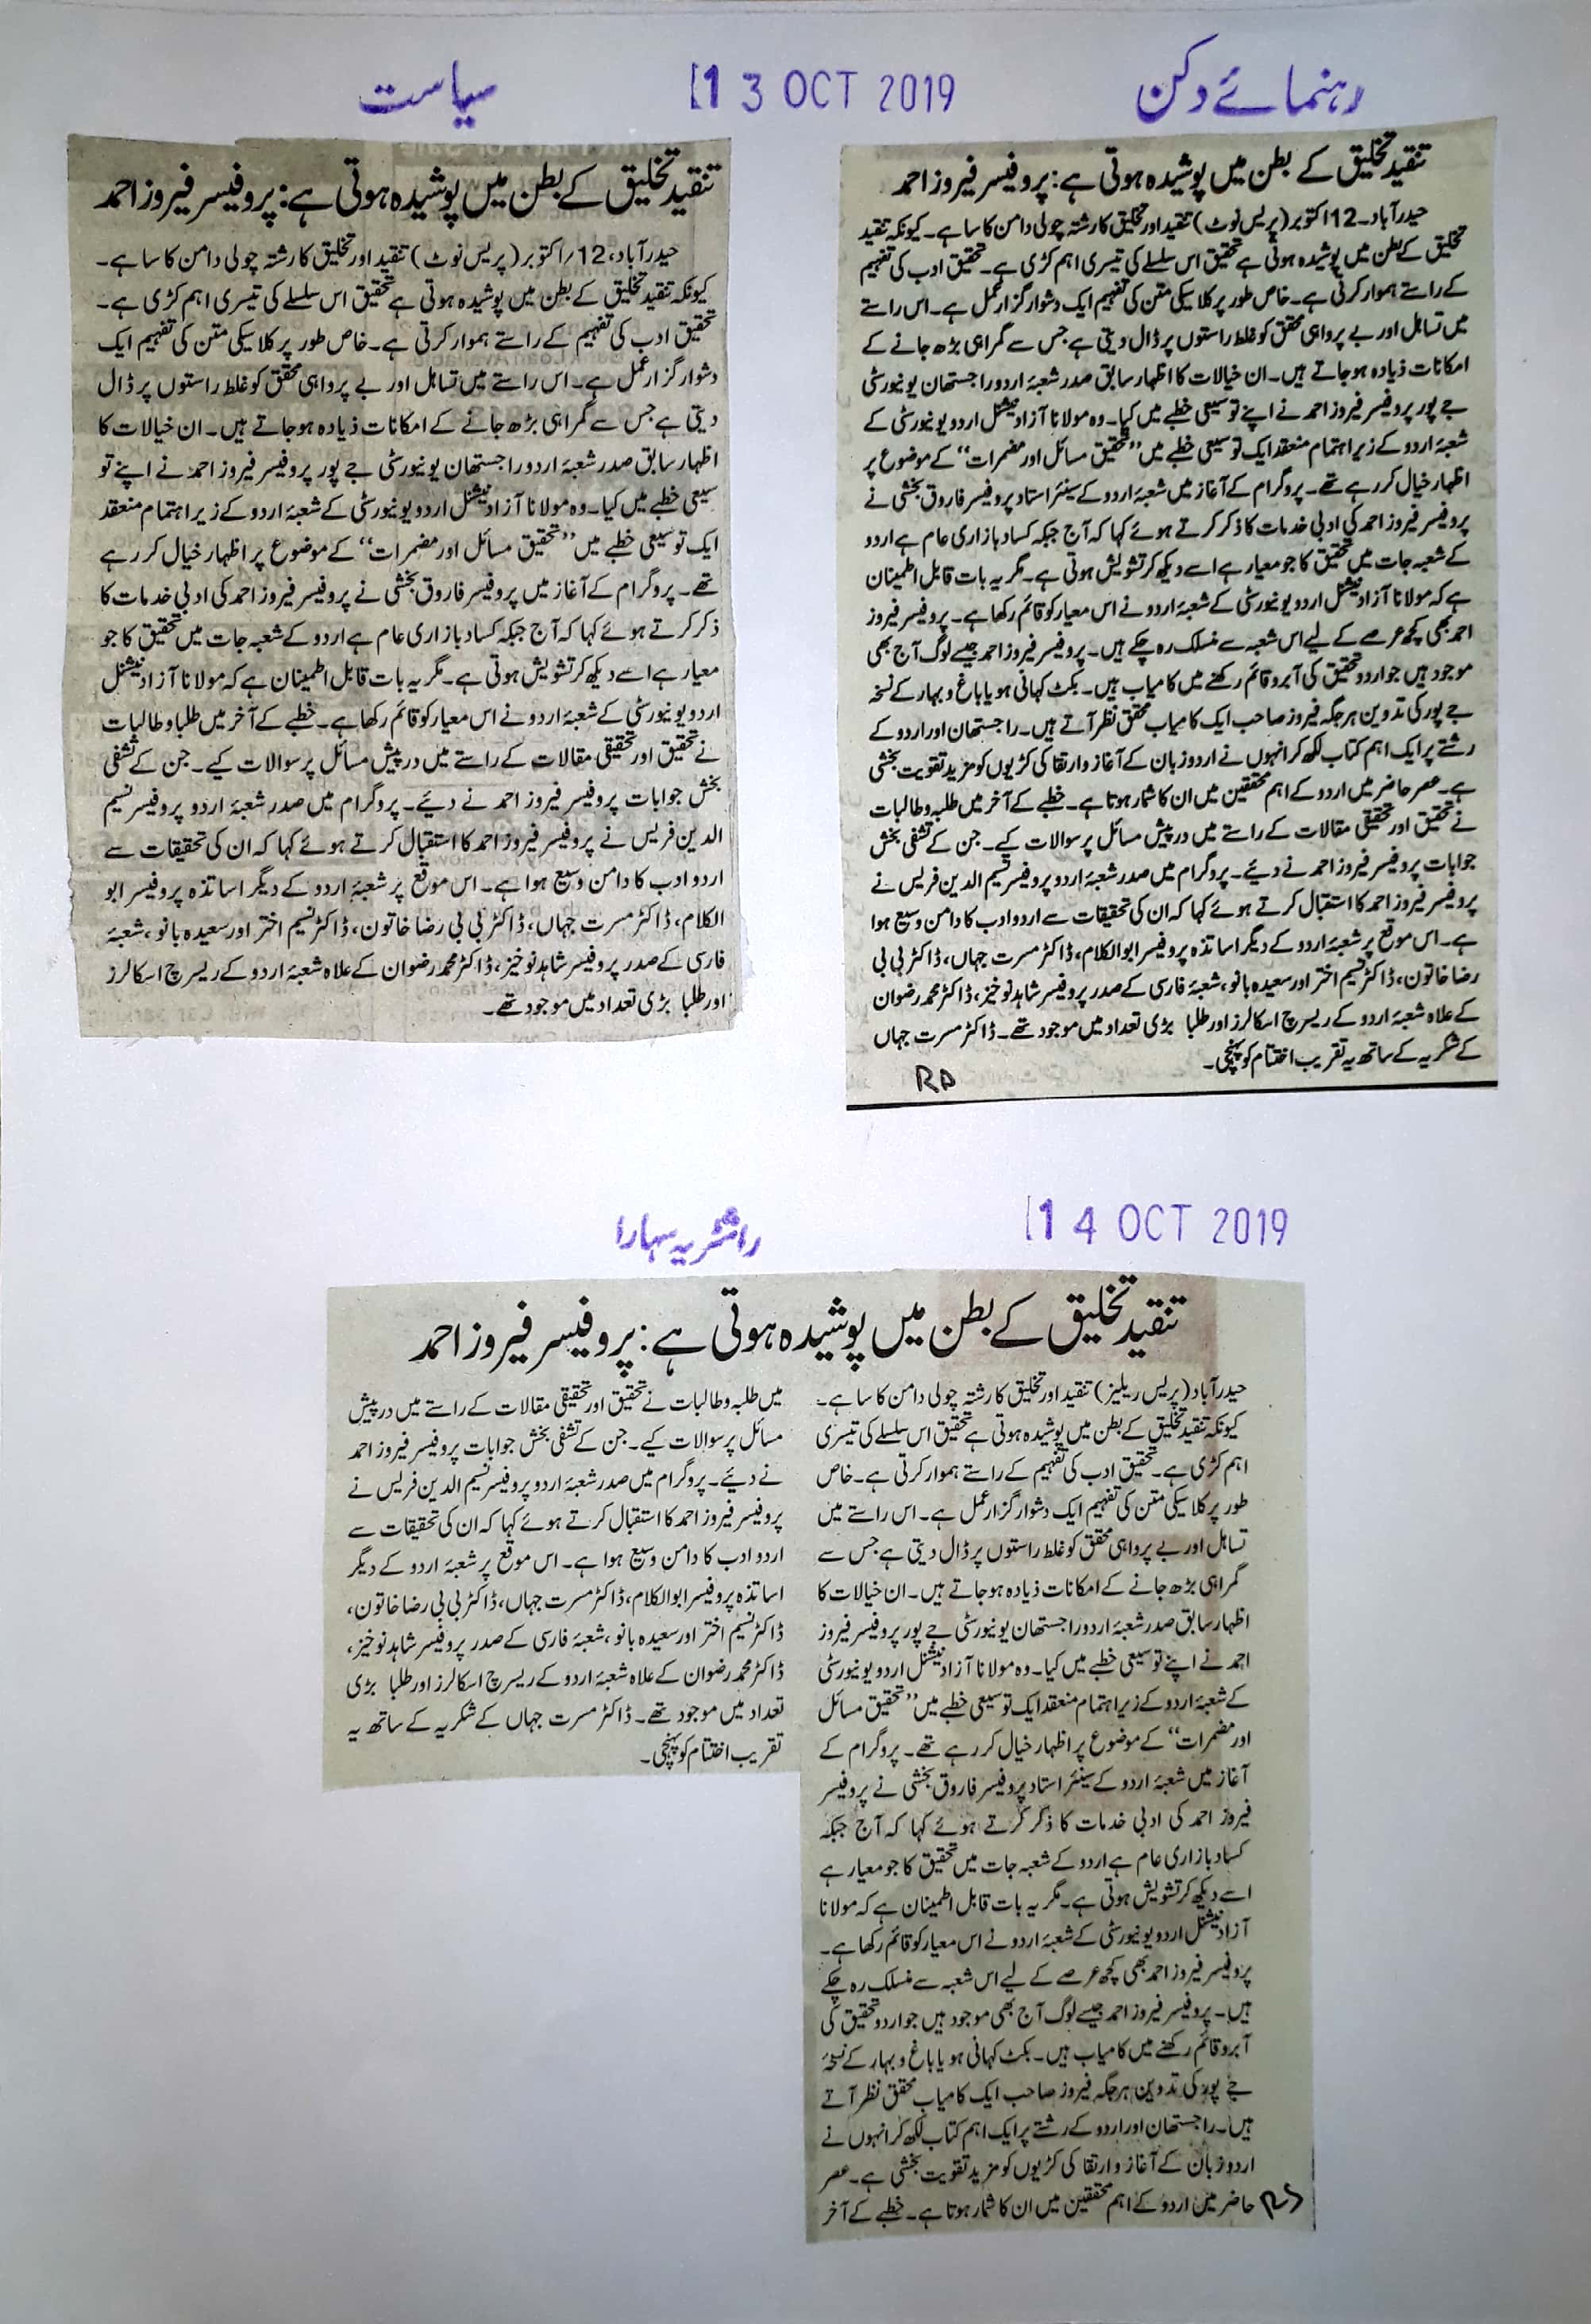 رہنمائے دکن
13 OCT 2019
سیاست
تنقید تخلیق کے بطن میں پوشیدہ ہوتی ہے: پروفیسر فیروز احمد
حیدرآباد۔12اکتوبر(پریس نوٹ) تنقید اور تخلیق کا رشتہ چولی دامن کا سا ہے۔ کیونکہ تنقید
تخلیق کے بطن میں پوشیدہ ہوتی ہے تحقیق اس سلسلے کی تیسری اہم کڑی ہے۔ تحقیق ادب کی تفہیم
کے راستے ہموار کرتی ہے۔ خاص طور پر کلاسیکی متن کی تفہیم ایک دشوار گزار عمل ہے۔ اس راستے
میں تساہل اور بے پرواہی محقق کو غلط راستوں پر ڈال دیتی ہے جس سے گمراہی بڑھ جانے کے
امکانات ذیادہ ہوجاتے ہیں۔ ان خیالات کا اظہار سابق صدر شعبۂ اردو راجستھان یونیورسٹی
جے پور پروفیسر فیروز احمد نے اپنے توسیعی خطبے میں کیا۔ وہ مولانا آزاد نیشنل اردو یونیورسٹی کے
شعبۂ اردو کے زیر اہتمام منعقد ایک توسیعی خطبے میں ”تحقیق مسائل اور مضمرات“ کے موضوع پر
اظہار خیال کر رہے تھے۔ پروگرام کے آغاز میں شعبۂ اردو کے سینئر استاد پروفیسر فاروق بخشی نے
پروفیسر فیروز احمد کی ادبی خدمات کا ذکر کرتے ہوئے کہا کہ آج جبکہ کساد بازاری عام ہے اردو
کے شعبہ جات میں تحقیق کا جو معیار ہے اسے دیکھ کر تشویش ہوتی ہے۔ مگر یہ بات قابل اطمینان
ہے کہ مولانا آزاد نیشنل اردو یونیورسٹی کے شعبۂ اردو نے اس معیار کو قائم رکھا ہے۔ پروفیسر فیروز
احمد بھی کچھ عرصے کے لیے اس شعبہ سے منسلک رہ چکے ہیں۔ پروفیسر فیروز احمد جیسے لوگ آج بھی
موجود ہیں جو اردو تحقیق کی آبرو قائم رکھنے میں کامیاب ہیں۔ بکٹ کہانی ہو یا باغ و بہار کے نسخہ
جے پور کی تدوین ہر جگہ فیروز صاحب ایک کامیاب محقق نظر آتے ہیں۔ راجستھان اور اردو کے
رشتے پر ایک اہم کتاب لکھ کر انہوں نے اردو زبان کے آغاز و ارتقا کی کڑیوں کو مزید تقویت بخشی
ہے۔ عصر حاضر میں اردو کے اہم محققین میں ان کا شمار ہوتا ہے۔ خطبے کے آخر میں طلبہ و طالبات
نے تحقیق اور تحقیقی مقالات کے راستے میں درپیش مسائل پر سوالات کیے۔ جن کے تشفی بخش
جوابات پروفیسر فیروز احمد نے دیئے۔ پروگرام میں صدر شعبۂ اردو پروفیسر نسیم الدین فریس نے
پروفیسر فیروز احمد کا استقبال کرتے ہوئے کہا کہ ان کی تحقیقات سے اردو ادب کا دامن وسیع ہوا
ہے۔ اس موقع پر شعبۂ اردو کے دیگر اساتذہ پروفیسر ابوالکلام، ڈاکٹر مسرت جہاں، ڈاکٹر بی بی
رضا خاتون، ڈاکٹر نسیم اختر اور سعیدہ بانو، شعبۂ فارسی کے صدر پروفیسر شاہد نوخیز، ڈاکٹر محمد رضوان
کے علاہ شعبۂ اردو کے ریسرچ اسکالرز اور طلبا بڑی تعداد میں موجود تھے۔ ڈاکٹر مسرت جہاں
کے شکریہ کے ساتھ یہ تقریب اختتام کو پہنچی۔
RD
تنقید تخلیق کے بطن میں پوشیدہ ہوتی ہے: پروفیسر فیروز احمد
حیدرآباد،12/اکتوبر (پریس نوٹ) تنقید اور تخلیق کا رشتہ چولی دامن کا سا ہے۔
کیونکہ تنقید تخلیق کے بطن میں پوشیدہ ہوتی ہے تحقیق اس سلسلے کی تیسری اہم کڑی ہے۔
تحقیق ادب کی تفہیم کے راستے ہموار کرتی ہے۔ خاص طور پر کلاسیکی متن کی تفہیم ایک
دشوار گزار عمل ہے۔ اس راستے میں تساہل اور بے پرواہی محقق کو غلط راستوں پر ڈال
دیتی ہے جس سے گمراہی بڑھ جانے کے امکانات ذیادہ ہوجاتے ہیں۔ ان خیالات کا
اظہار سابق صدر شعبۂ اردو راجستھان یونیورسٹی جے پور پروفیسر فیروز احمد نے اپنے تو
سیعی خطبے میں کیا۔ وہ مولانا آزاد نیشنل اردو یونیورسٹی کے شعبۂ اردو کے زیر اہتمام منعقد
ایک توسیعی خطبے میں ”تحقیق مسائل اور مضمرات“ کے موضوع پر اظہار خیال کر رہے
تھے۔ پروگرام کے آغاز میں پروفیسر فاروق بخشی نے پروفیسر فیروز احمد کی ادبی خدمات کا
ذکر کرتے ہوئے کہا کہ آج جبکہ کساد بازاری عام ہے اردو کے شعبہ جات میں تحقیق کا جو
معیار ہے اسے دیکھ کر تشویش ہوتی ہے۔ مگر یہ بات قابل اطمینان ہے کہ مولانا آزاد نیشنل
اردو یونیورسٹی کے شعبۂ اردو نے اس معیار کو قائم رکھا ہے۔ خطبے کے آخر میں طلبا و طالبات
نے تحقیق اور تحقیقی مقالات کے راستے میں درپیش مسائل پر سوالات کیے۔ جن کے تشفی
بخش جوابات پروفیسر فیروز احمد نے دیئے۔ پروگرام میں صدر شعبۂ اردو پروفیسر نسیم
الدین فریس نے پروفیسر فیروز احمد کا استقبال کرتے ہوئے کہا کہ ان کی تحقیقات سے
اردو ادب کا دامن وسیع ہوا ہے۔ اس موقع پر شعبۂ اردو کے دیگر اساتذہ پروفیسر ابو
الکلام، ڈاکٹر مسرت جہاں، ڈاکٹر بی بی رضا خاتون، ڈاکٹر نسیم اختر اور سعیدہ بانو، شعبۂ
فارسی کے صدر پروفیسر شاہد نوخیز، ڈاکٹر محمد رضوان کے علاہ شعبۂ اردو کے ریسرچ اسکالرز
اور طلبا بڑی تعداد میں موجود تھے۔
14 OCT 2019
راشٹریہ سہارا
تنقید تخلیق کے بطن میں پوشیدہ ہوتی ہے: پروفیسر فیروز احمد
حیدرآباد (پریس ریلیز) تنقید اور تخلیق کا رشتہ چولی دامن کا سا ہے۔
کیونکہ تنقید تخلیق کے بطن میں پوشیدہ ہوتی ہے تحقیق اس سلسلے کی تیسری
اہم کڑی ہے۔ تحقیق ادب کی تفہیم کے راستے ہموار کرتی ہے۔ خاص
طور پر کلاسیکی متن کی تفہیم ایک دشوار گزار عمل ہے۔ اس راستے میں
تساہل اور بے پرواہی محقق کو غلط راستوں پر ڈال دیتی ہے جس سے
گمراہی بڑھ جانے کے امکانات ذیادہ ہوجاتے ہیں۔ ان خیالات کا
اظہار سابق صدر شعبۂ اردو راجستھان یونیورسٹی جے پور پروفیسر فیروز
احمد نے اپنے توسیعی خطبے میں کیا۔ وہ مولانا آزاد نیشنل اردو یونیورسٹی
کے شعبۂ اردو کے زیر اہتمام منعقد ایک توسیعی خطبے میں ”تحقیق مسائل
اور مضمرات“ کے موضوع پر اظہار خیال کر رہے تھے۔ پروگرام کے
آغاز میں شعبۂ اردو کے سینئر استاد پروفیسر فاروق بخشی نے پروفیسر
فیروز احمد کی ادبی خدمات کا ذکر کرتے ہوئے کہا کہ آج جبکہ
کساد بازاری عام ہے اردو کے شعبہ جات میں تحقیق کا جو معیار ہے
اسے دیکھ کر تشویش ہوتی ہے۔ مگر یہ بات قابل اطمینان ہے کہ مولانا
آزاد نیشنل اردو یونیورسٹی کے شعبۂ اردو نے اس معیار کو قائم رکھا ہے۔
پروفیسر فیروز احمد بھی کچھ عرصے کے لیے اس شعبہ سے منسلک رہ چکے
ہیں۔ پروفیسر فیروز احمد جیسے لوگ آج بھی موجود ہیں جو اردو تحقیق کی
آبرو قائم رکھنے میں کامیاب ہیں۔ بکٹ کہانی ہو یا باغ و بہار کے نسخۂ
جے پور کی تدوین ہر جگہ فیروز صاحب ایک کامیاب محقق نظر آتے
ہیں۔ راجستھان اور اردو کے رشتے پر ایک اہم کتاب لکھ کر انہوں نے
اردو زبان کے آغاز و ارتقا کی کڑیوں کو مزید تقویت بخشی ہے۔ عصر
حاضر میں اردو کے اہم محققین میں ان کا شمار ہوتا ہے۔ خطبے کے آخر
RS
میں طلبہ و طالبات نے تحقیق اور تحقیقی مقالات کے راستے میں درپیش
مسائل پر سوالات کیے۔ جن کے تشفی بخش جوابات پروفیسر فیروز احمد
نے دیئے۔ پروگرام میں صدر شعبۂ اردو پروفیسر نسیم الدین فریس نے
پروفیسر فیروز احمد کا استقبال کرتے ہوئے کہا کہ ان کی تحقیقات سے
اردو ادب کا دامن وسیع ہوا ہے۔ اس موقع پر شعبۂ اردو کے دیگر
اساتذہ پروفیسر ابوالکلام، ڈاکٹر مسرت جہاں، ڈاکٹر بی بی رضا خاتون،
ڈاکٹر نسیم اختر اور سعیدہ بانو، شعبۂ فارسی کے صدر پروفیسر شاہد نوخیز،
ڈاکٹر محمد رضوان کے علاہ شعبۂ اردو کے ریسرچ اسکالرز اور طلبا بڑی
تعداد میں موجود تھے۔ ڈاکٹر مسرت جہاں کے شکریہ کے ساتھ یہ
تقریب اختتام کو پہنچی۔